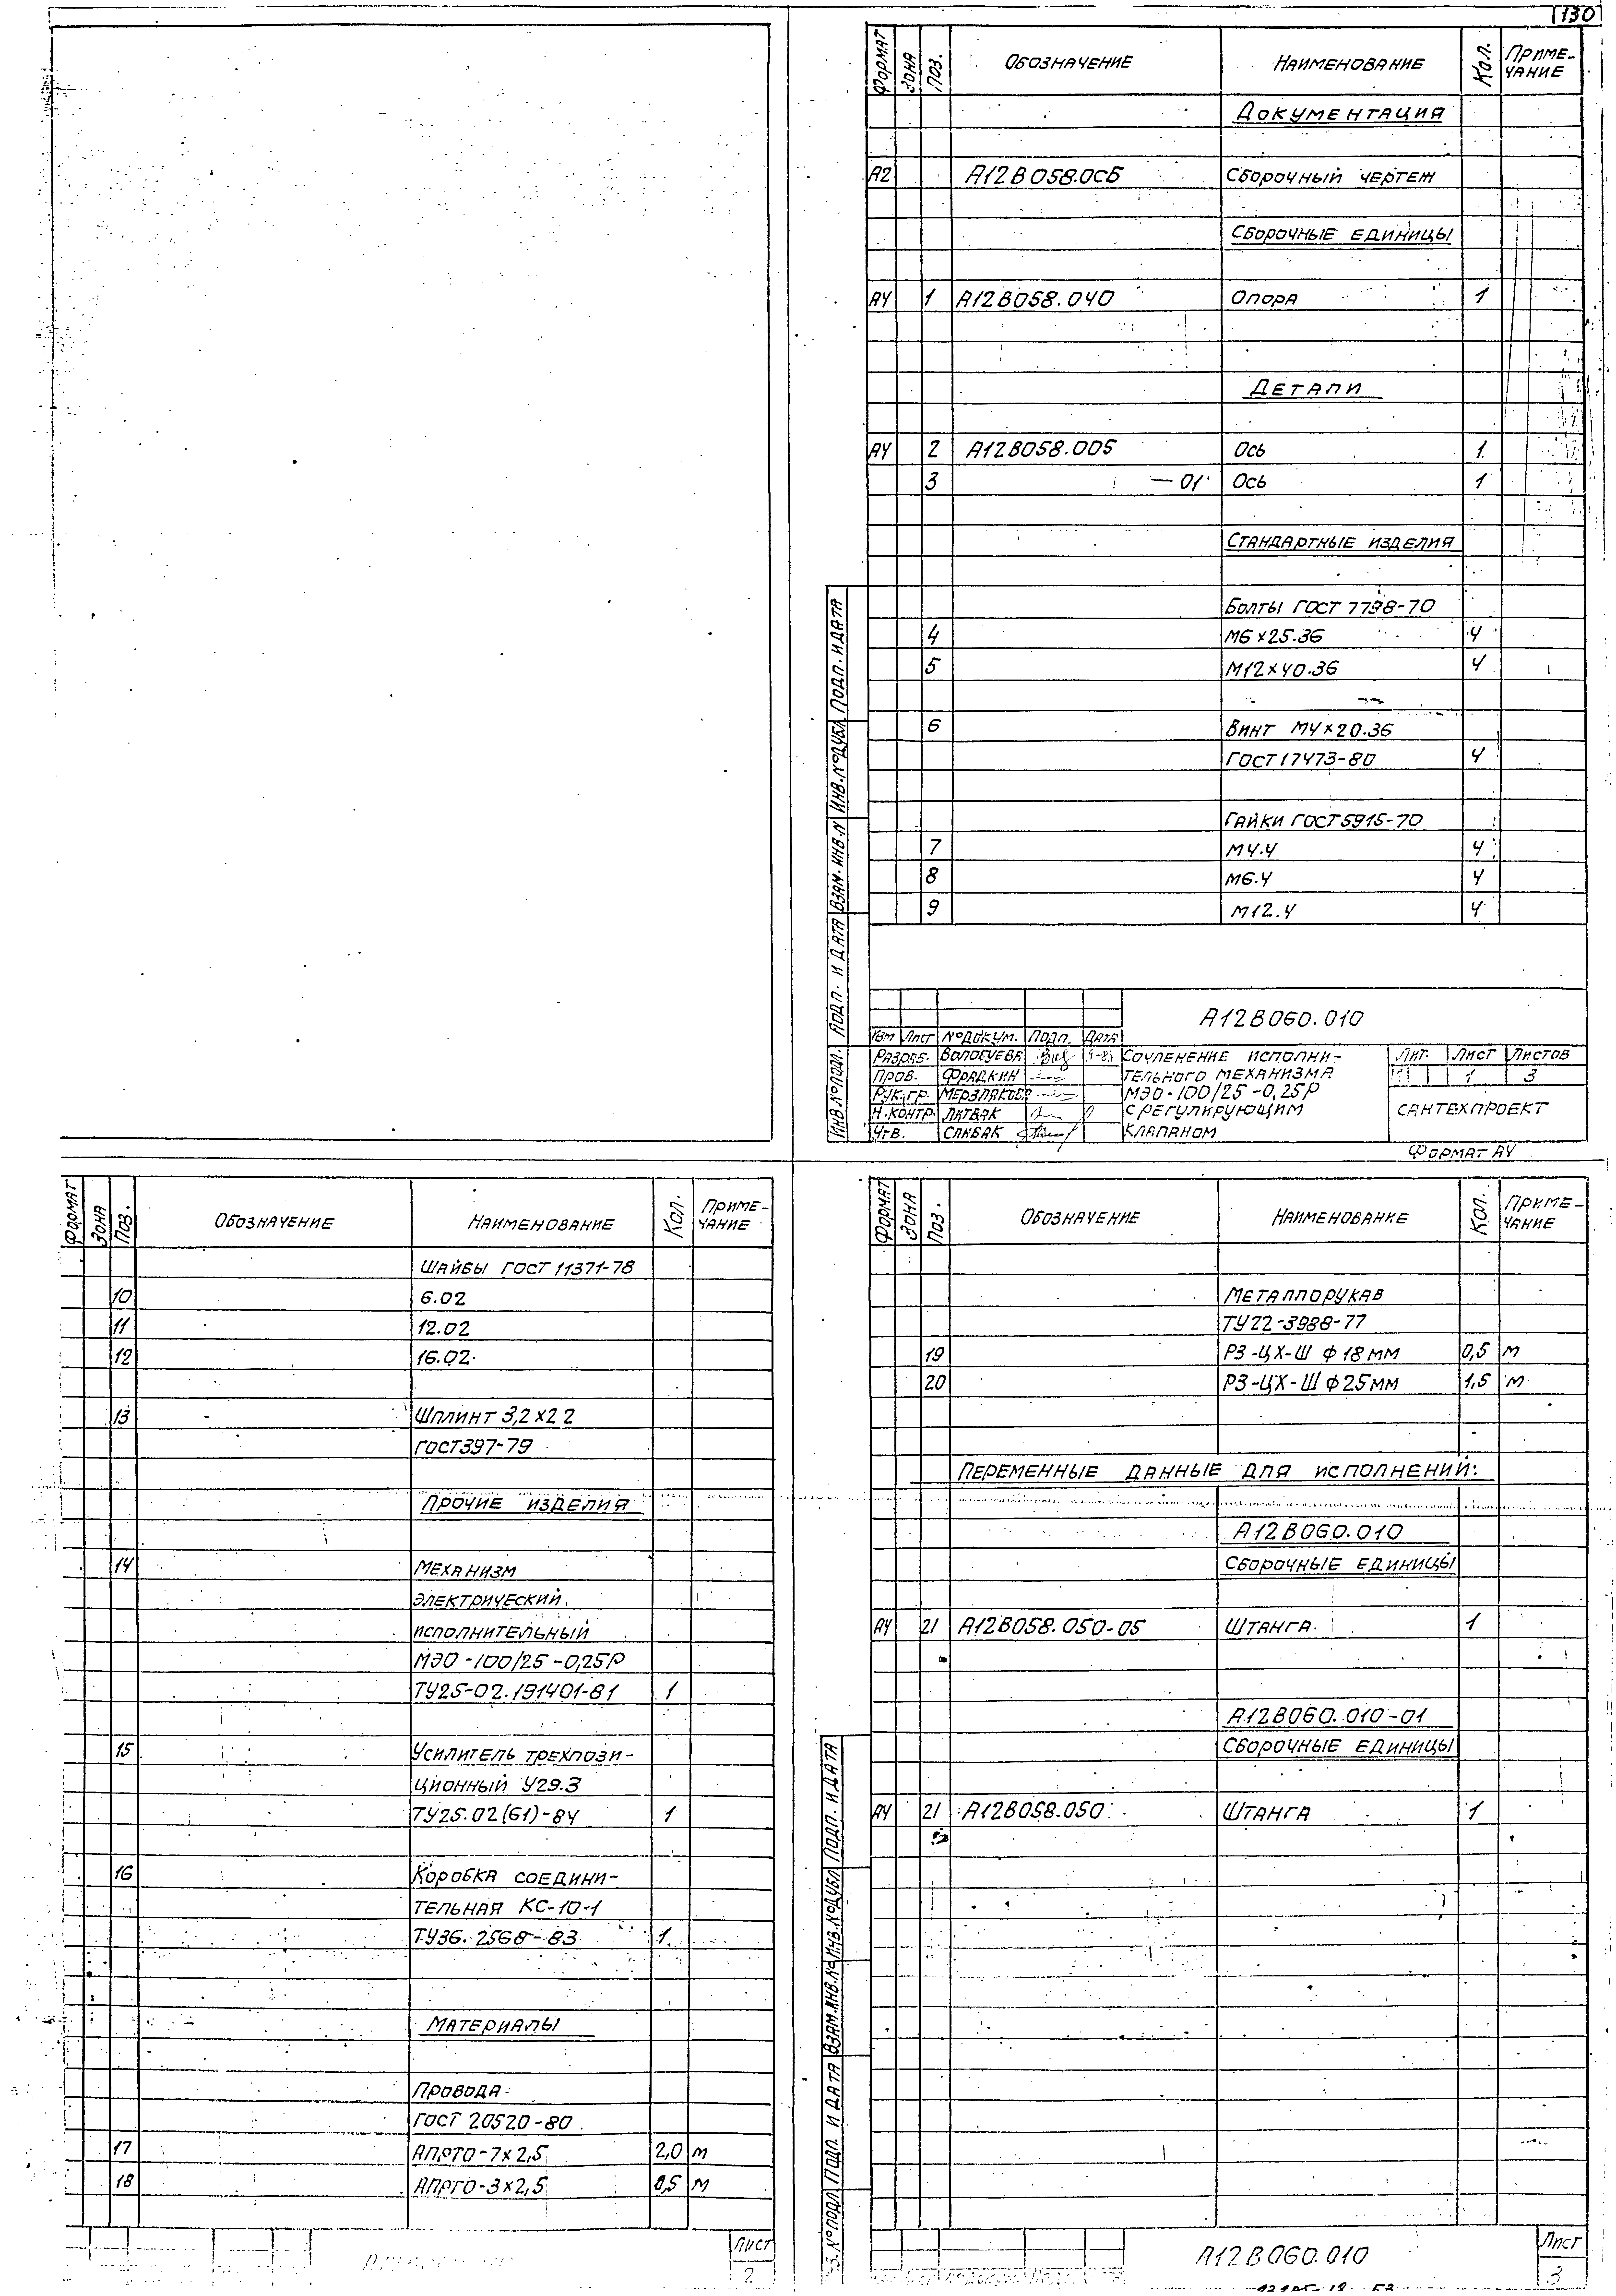 130
Формат Зона Поз. Обозначение Наименование Кол. Приме-
чание
Документация
А2 А12В058.0СБ Сборочный чертеж
Сборочные единицы
А4 1 А12В058.040 Опора 1
Детали
А4 2 А12В058.005 Ось 1
3 — 01 Ось 1
Стандартные изделия
Болты ГОСТ 7798-70
4 М6×25.36 4
5 М12×40.36 4
6 Винт М4×20.36
ГОСТ 17473-80 4
Гайки ГОСТ 5915-70
7 М4.4 4
8 М6.4 4
9 М12.4 4
Инв.№подл. Подп. и дата Взам.инв.№ Инв.№дубл. Подп. и дата
А12В060.010
Изм Лист №докум. Подп. Дата
Разраб. Вологуева
Пров. Фрадкин
Рук.гр. Мерзлякова
Н.контр. Литвак
Утв. Спивак
Сочленение исполни-
тельного механизма
МЭО-100/25-0,25Р
с регулирующим
клапаном
Лит. Лист Листов
1 3
Сантехпроект
Формат А4
Формат Зона Поз. Обозначение Наименование Кол. Приме-
чание
Шайбы ГОСТ 11371-78
10 6.02
11 12.02
12 16.02
13 Шплинт 3,2×22
ГОСТ397-79
Прочие изделия
14 Механизм
электрический
исполнительный
МЭО-100/25-0,25Р
ТУ25-02.191401-81 1
15 Усилитель трехпози-
ционный У29.3
ТУ25.02(61)-84 1
16 Коробка соедини-
тельная КС-10-1
ТУ36.2568-83 1
Материалы
Провода
ГОСТ 20520-80
17 АПРТО-7×2,5 2,0 м
18 АПРТО-3×2,5 0,5 м
Лист
2
Формат Зона Поз. Обозначение Наименование Кол. Приме-
чание
Металлорукав
ТУ22-3988-77
19 РЗ-ЦХ-Ш ф18мм 0,5 м
20 РЗ-ЦХ-Ш ф25мм 1,5 м
Переменные данные для исполнений:
А12В060.010
Сборочные единицы
А4 21 А12В058.050-05 Штанга 1
А12В060.010-01
Сборочные единицы
А4 21 А12В058.050 Штанга 1
№подл Подп. и дата Взам.инв.№ Инв.№дубл Подп. и дата
А12В060.010
Лист
3